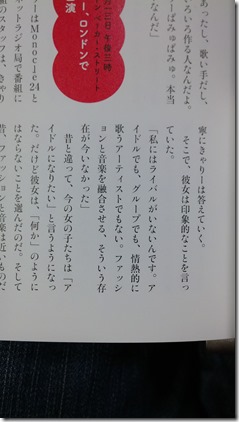 あったし、歌い手だし、
いろいろ作る人なんだよ。
ーぱみゅぱみゅ。本当
なんだ」
二日 午後三時
ン ベーカー・ストリート
ー、ロンドンで
演
ーはMonocle24と
ネットラジオ局で番組に
のスタッフは、きゃり
寧にきゃりーは答えていく。
そこで、彼女は印象的なことを言っ
ていた。
「私にはライバルがいないんです。ア
イドルでも、グループでも、情熱的に
歌うアーティストでもない。ファッシ
ョンと音楽を融合させる、そういう存
在が今いなかった」
昔と違って、今の女の子たちは「ア
イドルになりたい」と言うようになっ
た。だけど彼女は、「何か」のように
はならないことを選んだのだ。そして
昔、ファッションと音楽は近いものだ